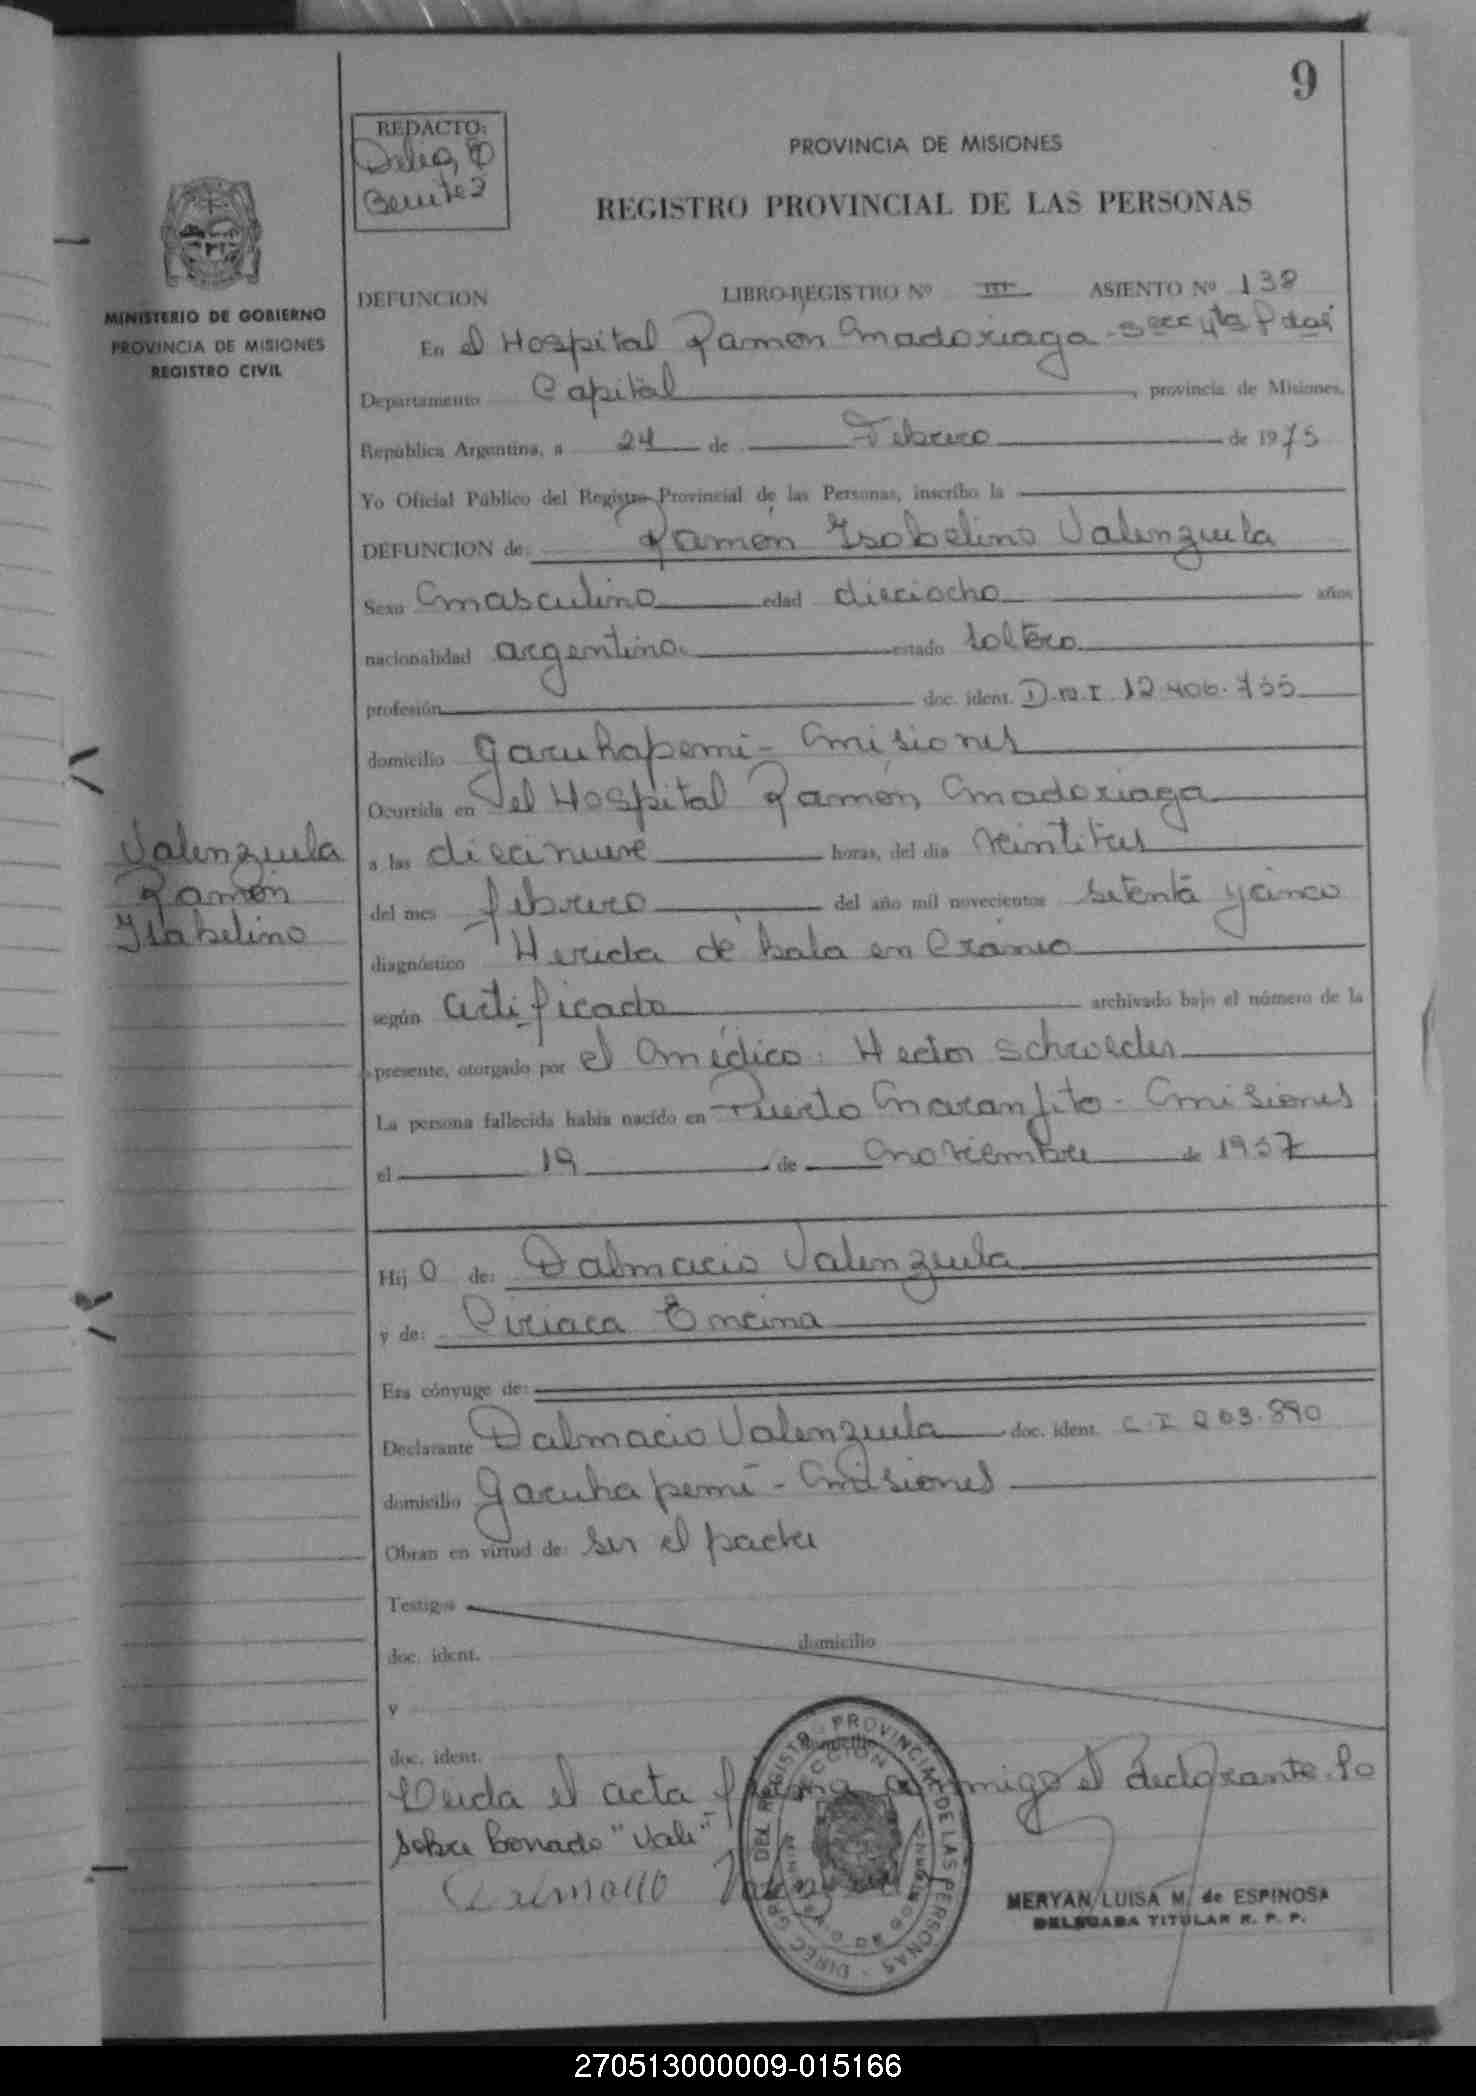 9
REDACTO:
Delia
Benitez
PROVINCIA DE MISIONES
REGISTRO PROVINCIAL DE LAS PERSONAS
MINISTERIO DE GOBIERNO
PROVINCIA DE MISIONES
REGISTRO CIVIL
DEFUNCION LIBRO-REGISTRO Nº III ASIENTO Nº 138
En el Hospital Ramón Madoriaga
Departamento Capital, provincia de Misiones,
República Argentina, a 24 de Febrero de 1975
Yo Oficial Público del Registro Provincial de las Personas, inscribo la
DEFUNCION de: Ramón Isabelino Valenzuela
Sexo Masculino edad dieciocho años
nacionalidad argentina estado soltero
profesión doc. ident. D.N.I. 12.406.755
domicilio Garuhapemi - Misiones
Ocurrida en el Hospital Ramón Madoriaga
a las diecinueve horas, del día veintitres
del mes febrero del año mil novecientos setenta y cinco
diagnóstico Herida de bala en Cráneo
según certificado archivado bajo el número de la
presente, otorgado por el Médico: Hector Schroeder
La persona fallecida había nacido en Puerto Naranjito - Misiones
el 19 de noviembre de 1957
Valenzuela
Ramón
Isabelino
Hij o de: Dalmacio Valenzuela
y de: Ciriaca Encina
Era cónyuge de:
Declarante Dalmacio Valenzuela doc. ident. C.I 203.890
domicilio Garuhapemi - Misiones
Obran en virtud de: ser el padre
Testigos
doc. ident. domicilio
y
doc. ident. domicilio
Leida el acta firma conmigo el declarante. Lo
sobre borrado "Vale"
Dalmacio Valenzuela
DIREC. GRAL. DEL REGISTRO PROVINCIAL DE LAS PERSONAS
MERYAN LUISA M. de ESPINOSA
DELEGADA TITULAR R. P. P.
270513000009-015166